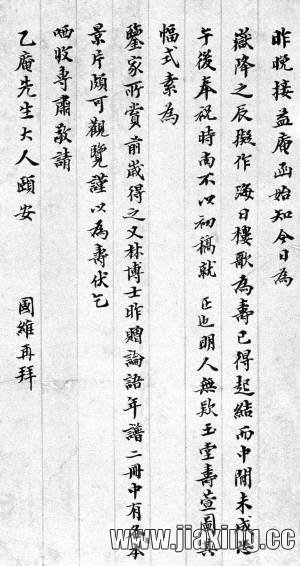 昨晚接益庵函始知今日为
嶽降之辰擬作海日樓歌為壽已得起結而中間未成恐
午後奉祝時尚不以初稿就正也明人無款玉堂壽萱圖其
幅式素為
鑒家所賞前歲得之又林博士昨贈論語年譜二冊中有各本
景片頗可觀覽謹以為壽伏乞
哂收專肅敬請
乙庵先生大人頤安
國維再拜
www.jiaxing.cc